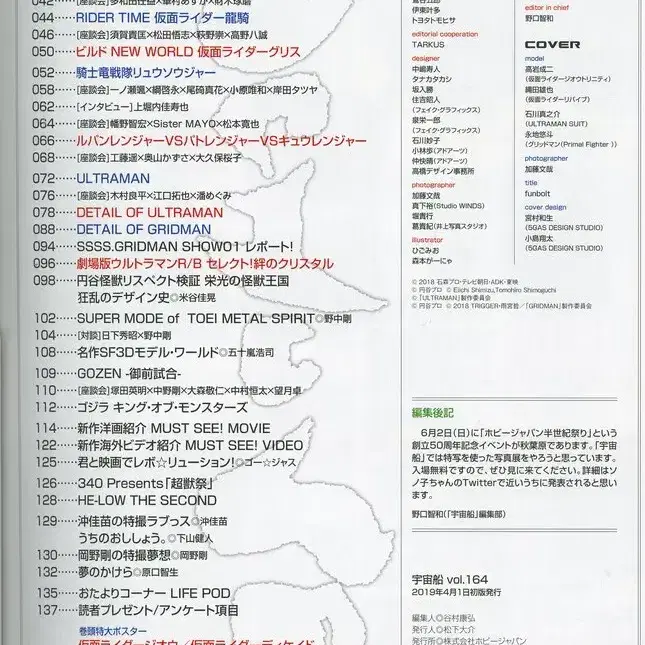 042……[座談会]多和田任益×華村あすか×財木琢磨
044……RIDER TIME 仮面ライダー龍騎
[座談会]須賀貴匡×松田悟志×萩野崇×高野八誠
050……ビルド NEW WORLD 仮面ライダーグリス
052……騎士竜戦隊リュウソウジャー
058……[座談会]一ノ瀬颯×綱啓永×尾碕真花×小原唯和×岸田タツヤ
062……[インタビュー]上堀内佳寿也
064……[座談会]幡野智宏×Sister MAYO×松本寛也
066……ルパンレンジャーVSパトレンジャーVSキュウレンジャー
068……[座談会]工藤遥×奥山かずさ×大久保桜子
072……ULTRAMAN
076……[座談会]木村良平×江口拓也×潘めぐみ
078……DETAIL OF ULTRAMAN
088……DETAIL OF GRIDMAN
094……SSSS.GRIDMAN SHOW01 レポート!
096……劇場版ウルトラマンR/B セレクト!絆のクリスタル
098……円谷怪獣リスペクト検証 栄光の怪獣王国
狂乱のデザイン史◎米谷佳晃
102……SUPER MODE of TOEI METAL SPIRIT◎野中剛
104……[対談]日下秀昭×野中剛
108……名作SF3Dモデル・ワールド◎五十嵐浩司
109……GOZEN -御前試合-
110……[座談会]塚田英明×中野剛×大森敬仁×中村恒太×望月卓
112……ゴジラ キング・オブ・モンスターズ
114……新作洋画紹介 MUST SEE! MOVIE
122……新作海外ビデオ紹介 MUST SEE! VIDEO
125……君と映画でレボ☆リューション!◎ゴー☆ジャス
126……340 Presents「超獣祭」
128……HE-LOW THE SECOND
129……沖佳苗の特撮ラブっス◎沖佳苗
うちのおししょう。◎下山健人
130……岡野剛の特撮夢想◎岡野剛
132……夢のかけら◎原口智生
135……おたよりコーナー LIFE POD
137……読者プレゼント/アンケート項目
巻頭特大ポスター
仮面ライダージオウ/仮面ライダーディケイド
伊東叶多
トヨタトモヒサ
editorial cooperation
TARKUS
designer
中嶋寿人
タナカタカシ
坂入勝
住吉昭人
(フェイク・グラフィックス)
泉栄一郎
(フェイク・グラフィックス)
石川妙子
小林歩(アドアーツ)
仲快晴(アドアーツ)
高橋デザイン事務所
photographer
加藤文哉
真下裕(Studio WINDS)
堀貴行
葛貴紀(井上写真スタジオ)
illustrator
ひごみお
森本がーにゃ
editor in chief
野口智和
COVER
model
高岩成二
(仮面ライダージオウトリニティ)
縄田雄也
(仮面ライダーリバイブ)
石川真之介
(ULTRAMAN SUIT)
永地悠斗
(グリッドマン(Primal Fighter ))
photographer
加藤文哉
title
funbolt
cover design
宮村和生
(5GAS DESIGN STUDIO)
小島翔太
(5GAS DESIGN STUDIO)
© 2018 石森プロ・テレビ朝日・ADK・東映
© 円谷プロ © Eiichi Shimizu,Tomohiro Shimoguchi
© 「ULTRAMAN」製作委員会
© 円谷プロ © 2018 TRIGGER・雨宮哲/「GRIDMAN」製作委員会
編集後記
6月2日(日)に「ホビージャパン半世紀祭り」という
創立50周年記念イベントが秋葉原であります。「宇宙
船」では特写を使った写真展をやろうと思っています。
入場無料ですので、ぜひ見に来てください。詳細はソ
ノ子ちゃんのTwitterで近いうちに発表されると思い
ます。
野口智和(「宇宙船」編集部)
宇宙船 vol.164
2019年4月1日初版発行
編集人◎谷村康弘
発行人◎松下大介
発行所◎株式会社ホビージャパン